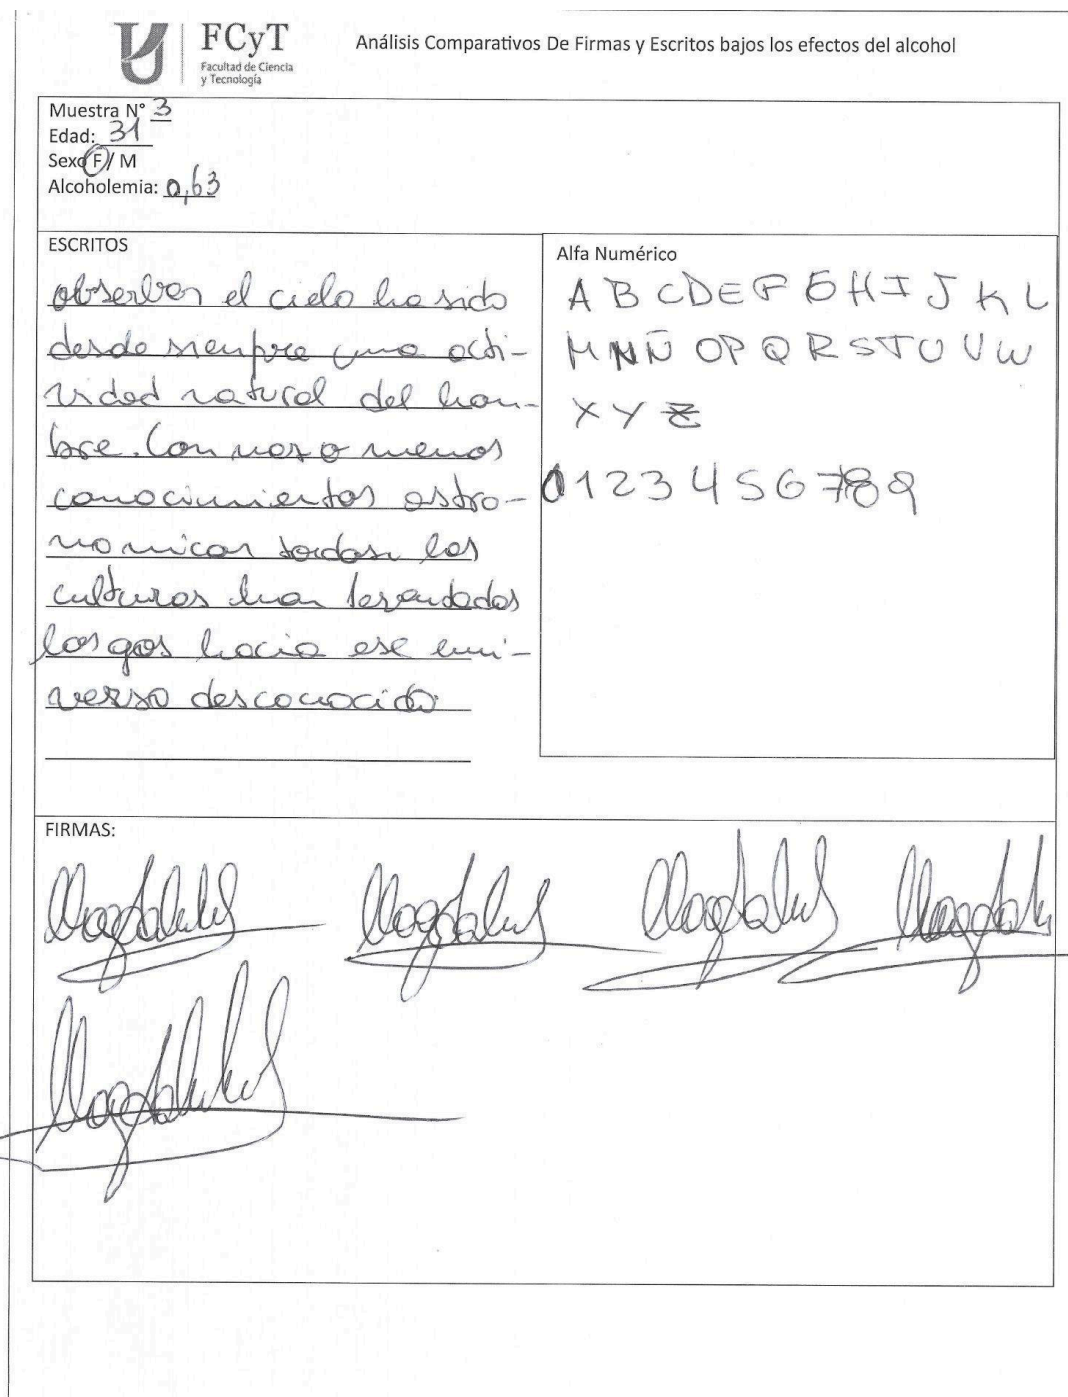 FCyT
Facultad de Ciencia
y Tecnología
Análisis Comparativos De Firmas y Escritos bajos los efectos del alcohol
Muestra N° 3
Edad: 31
Sexo F/ M
Alcoholemia: 0,63
ESCRITOS
observar el cielo ha sido
desde siempre una acti-
vidad natural del hom-
bre. Con mas o menos
conocimientos astro-
nomicos todas las
culturas han levantados
los ojos hacia ese uni-
verso desconocido
Alfa Numérico
A B C D E F G H I J K L
M N Ñ O P Q R S T U V W
X Y Z
0 1 2 3 4 5 6 7 8 9
FIRMAS: